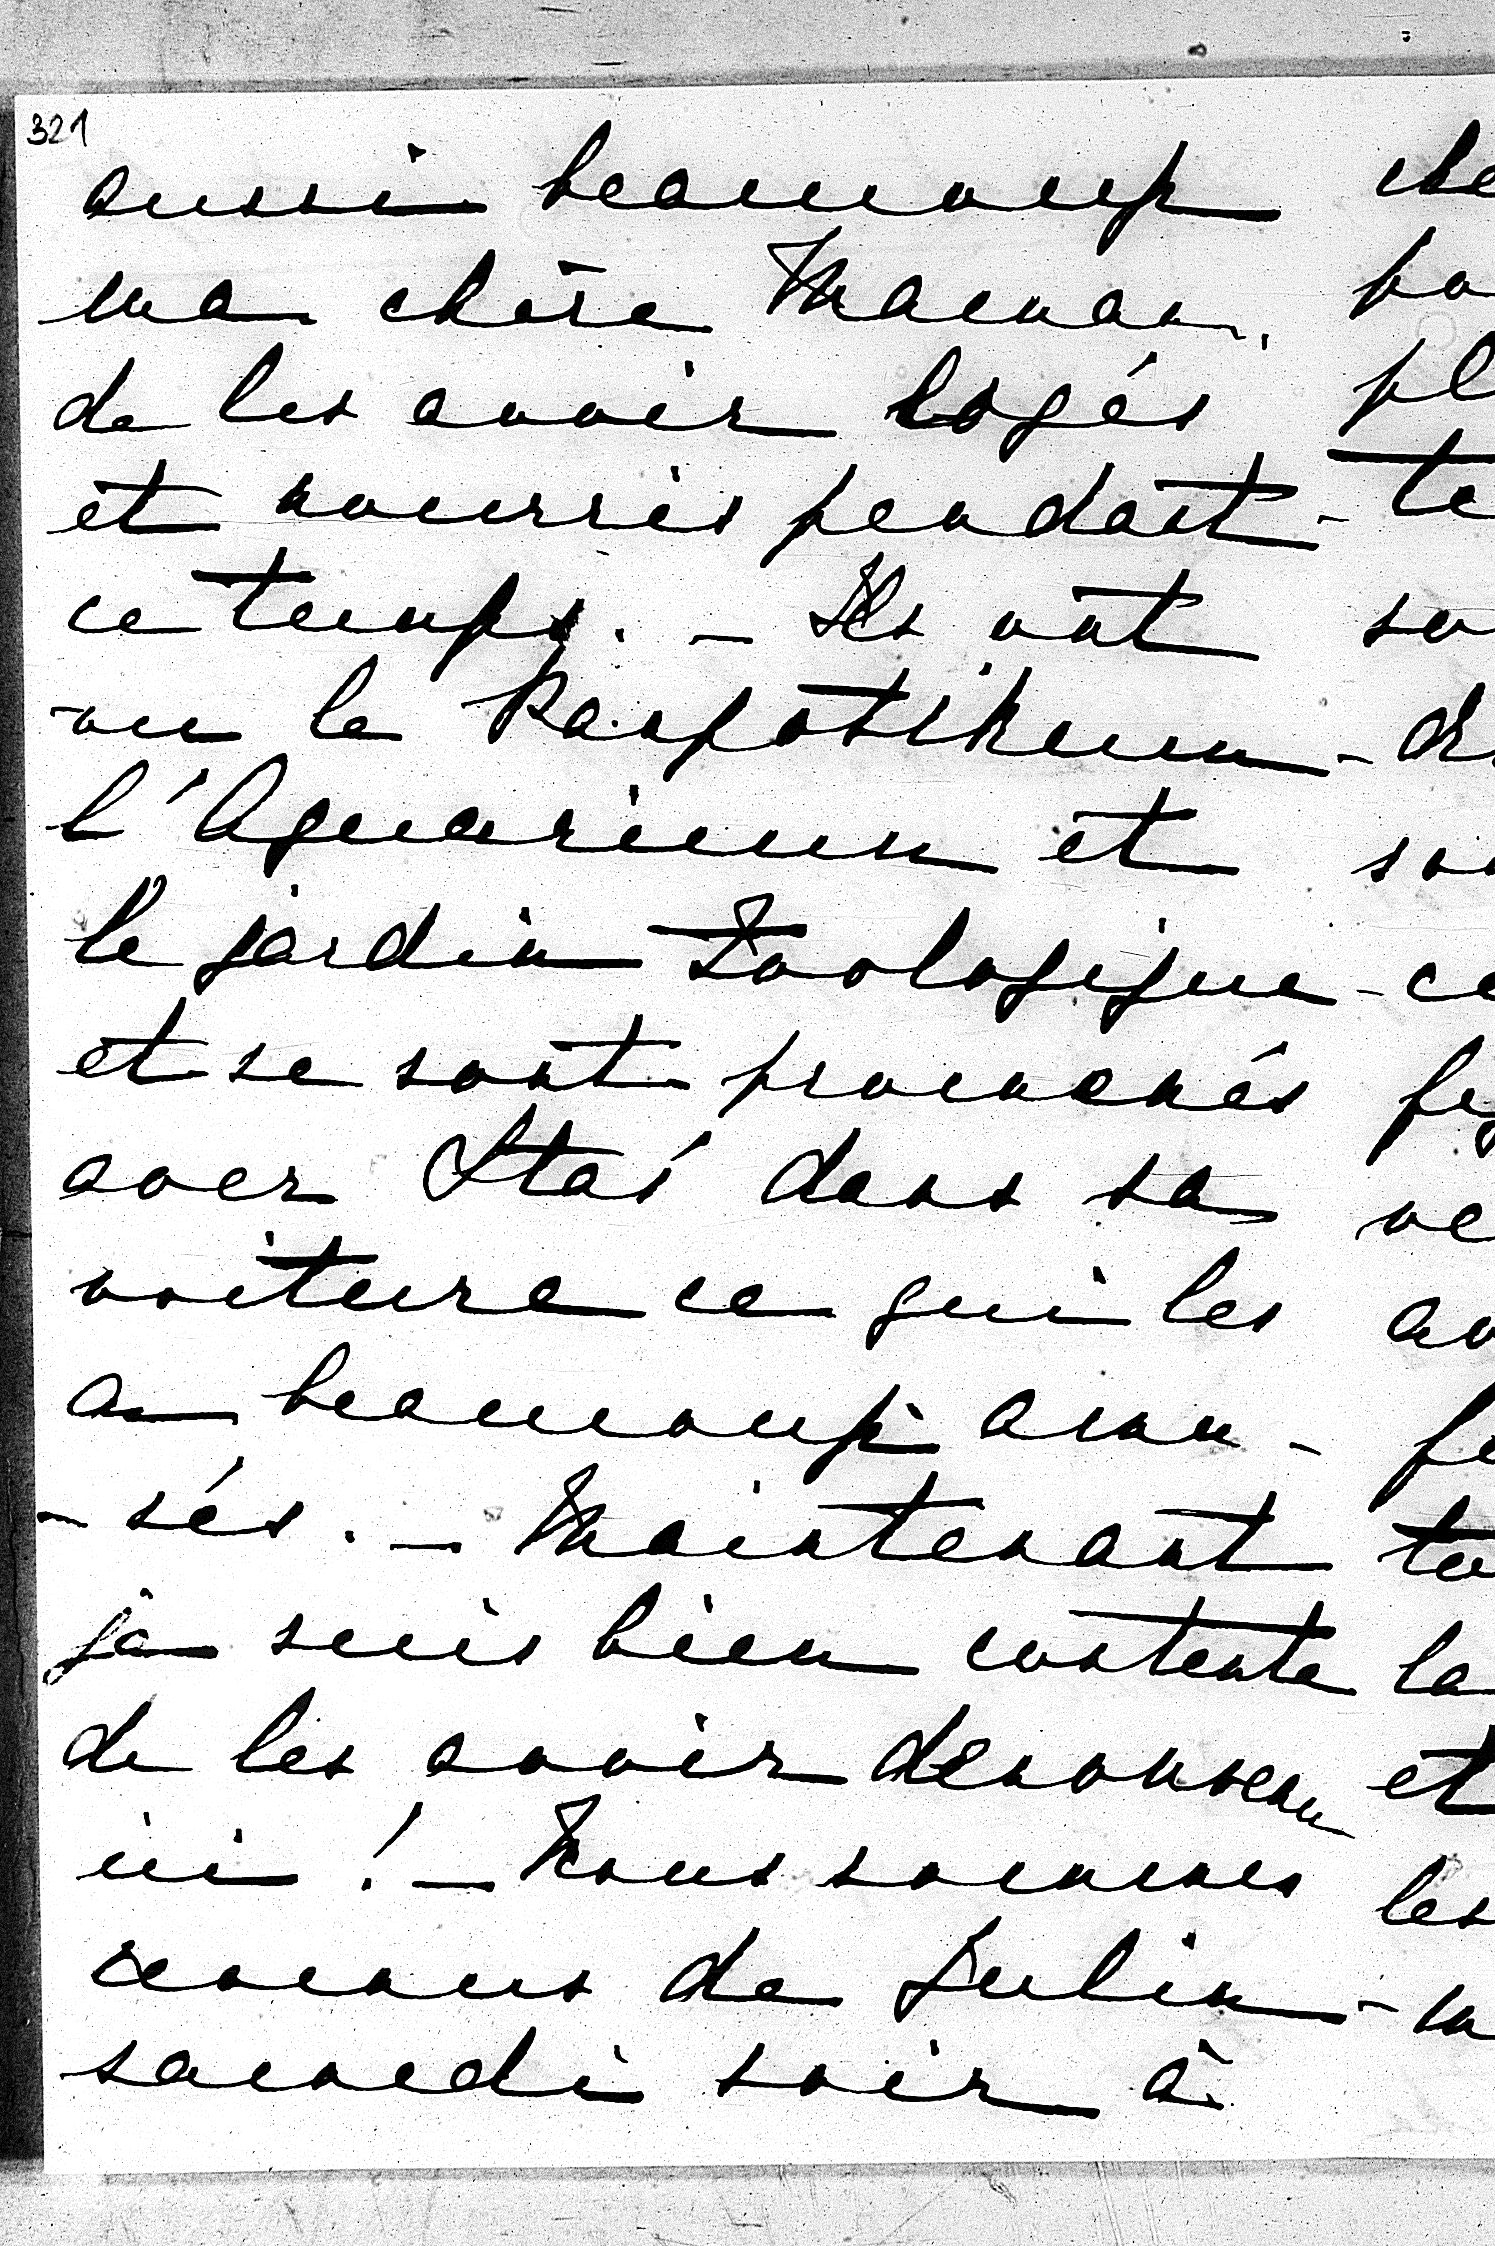 321
aussi beaucoup
ma chère Maman,
de les avoir logés
et nourris pendant
ce temps. – Ils ont
vu le Panoptikum
l'Aquarium et
le jardin Zoologique
et se sont promenés
avec Stas dans sa
voiture ce qui les
a beaucoup amu-
-sés. – Maintenant
je suis bien contente
de les avoir de nouveau
ici! – Nous sommes
revenus de
samedi soir à